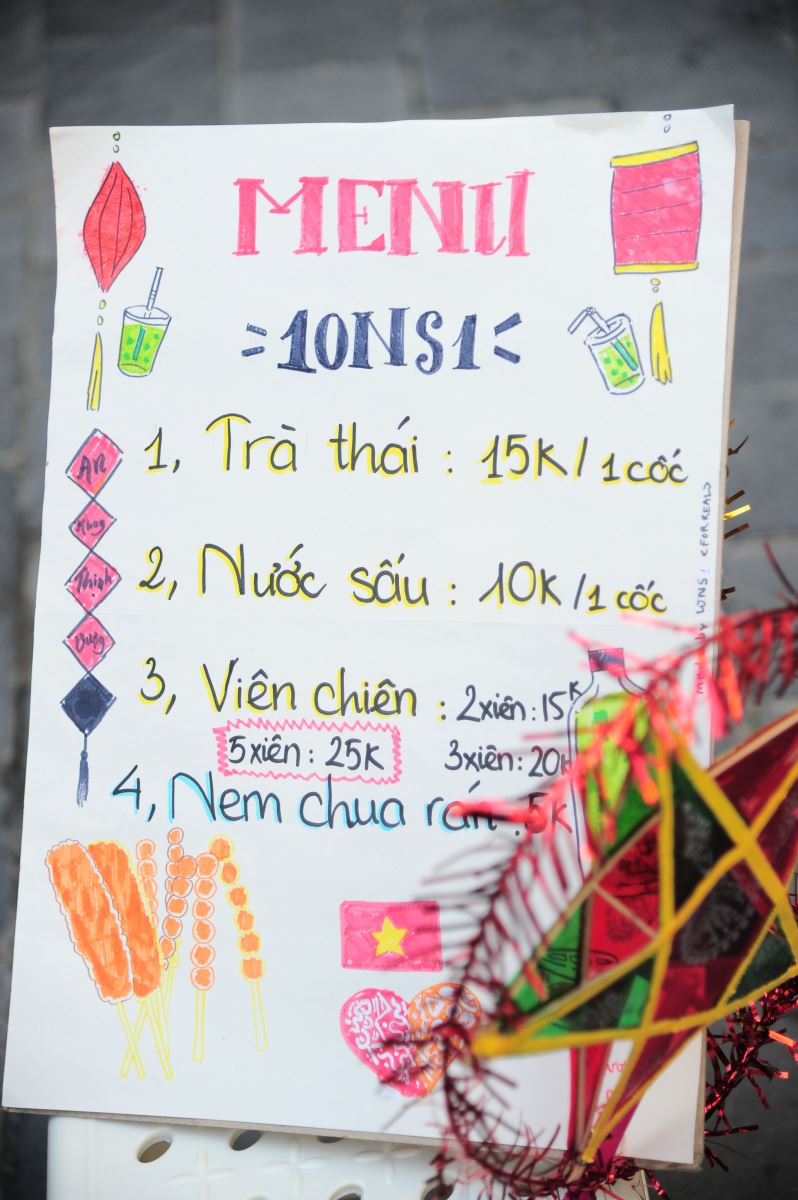 MENU
10NS1
1, Trà thái : 15K / 1 cốc
2, Nước sấu : 10K / 1 cốc
3, Viên chiên : 2 xiên : 15K
5 xiên : 25K 3 xiên : 20K
4, Nem chua rán : 5K
AN
Khang
Thịnh
Vượng
by 10NS1 <FOR REAL>